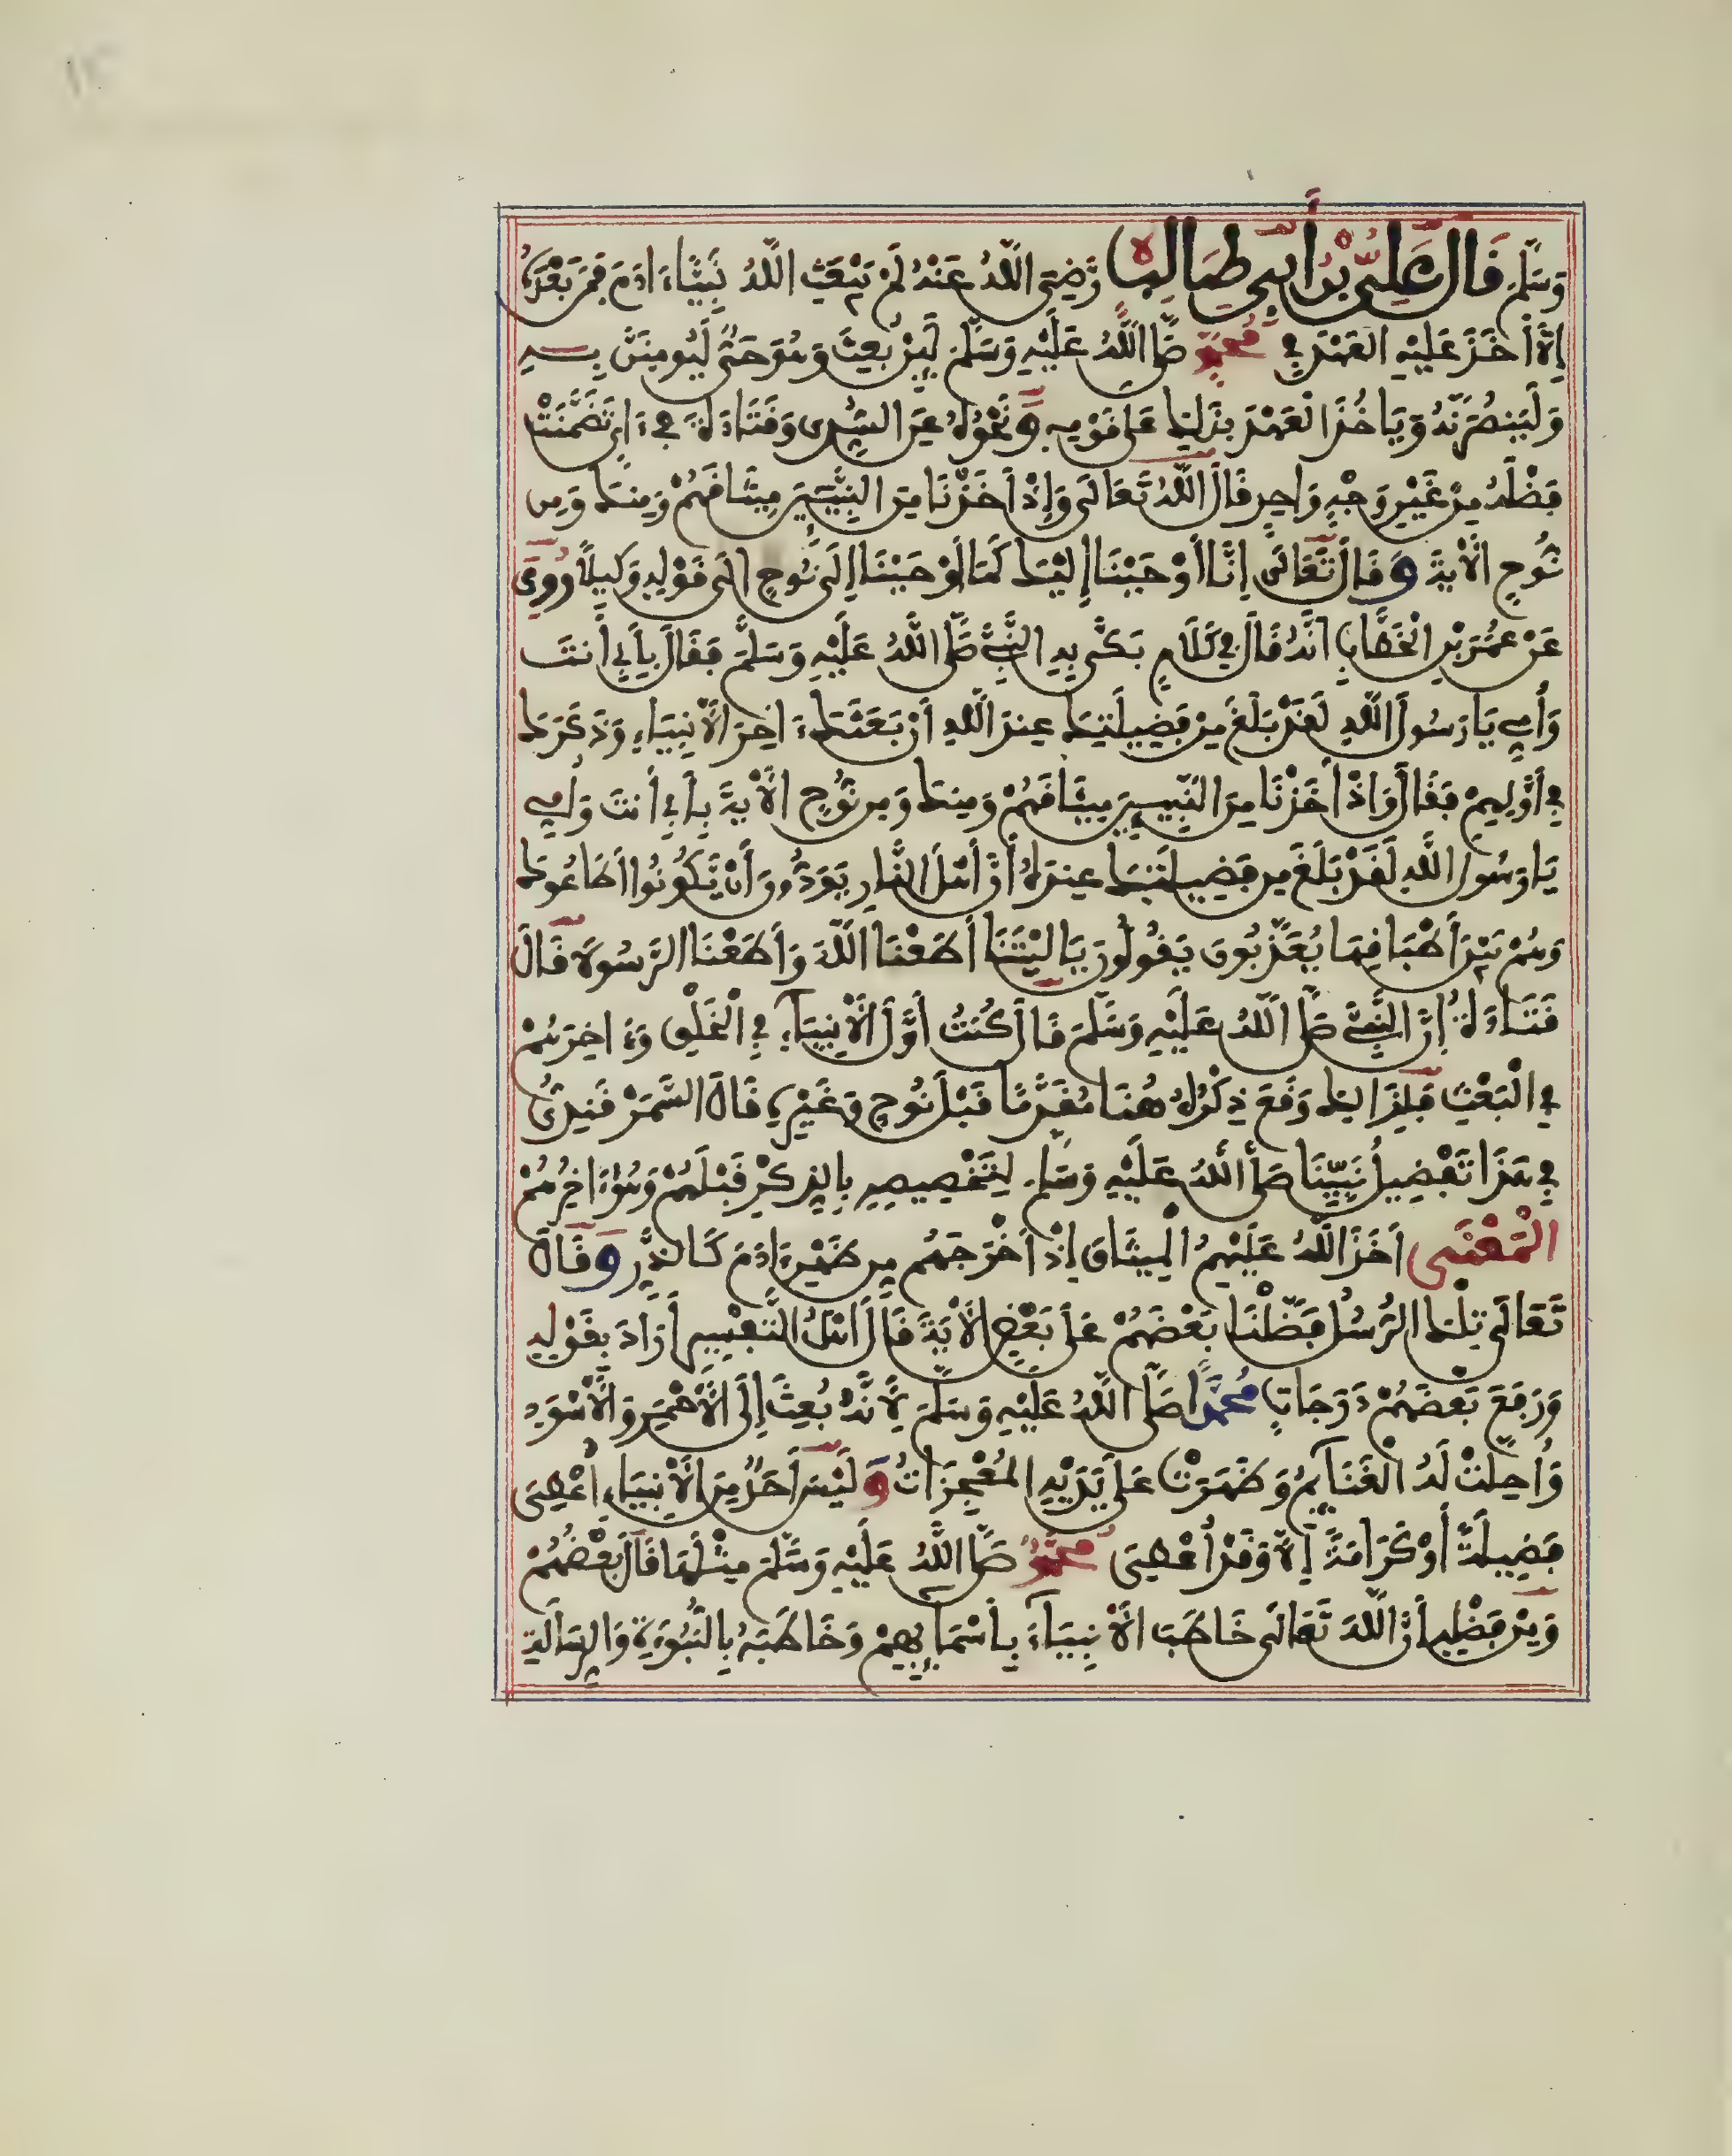 وَسَلَّمَ قَالَ عَلِيُّ بْنُ أَبِي طَالِبٍ رَضِيَ اللَّهُ عَنْهُ لَمْ يَبْعَثِ اللَّهُ نَبِيًّا مِنْ ءَادَمَ فَمَنْ بَعْدَهُ
إِلَّا أَخَذَ عَلَيْهِ الْعَهْدَ فِي مُحَمَّدٍ صَلَّى اللَّهُ عَلَيْهِ وَسَلَّمَ لَئِنْ بُعِثَ وَهُوَ حَيٌّ لَيُومِنَنَّ بِهِ
وَلَيَنْصُرَنَّهُ وَيَاخُذُ الْعَهْدَ بِذَلِكَ عَلَى قَوْمِهِ وَنَحْوُهُ عَنِ السُّدِّى وَقَتَادَةَ فِي ءَايٍ تَضَمَّنَتْ
فَضْلَهُ مِنْ غَيْرِ وَجْهٍ وَاحِدٍ قَالَ اللَّهُ تَعَالَى وَإِذْ أَخَذْنَا مِنَ النَّبِيِّينَ مِيثَاقَهُمْ وَمِنْكَ وَمِن
نُوحٍ الْأيَةَ وَقَالَ تَعَالَى إِنَّا أَوْحَيْنَا إِلَيْكَ كَمَا أَوْحَيْنَا إِلَى نُوحٍ إِلَى قَوْلِهِ وَكِيلًا رُوِيَ
عَنْ عُمَرَ بْنِ الْخَطَّابِ أَنَّهُ قَالَ فِي كَلَامٍ بَكَى بِهِ النَّبِيَّ صَلَّى اللَّهُ عَلَيْهِ وَسَلَّمَ فَقَالَ بِأَبِي أَنْتَ
وَأُمِّي يَا رَسُولَ اللَّهِ لَقَدْ بَلَغَ مِنْ فَضِيلَتِكَ عِنْدَ اللَّهِ أَنْ بَعَثَكَ ءَاخِرَ الْأَنْبِيَاءِ وَذَكَرَكَ
فِي أَوَّلِهِمْ فَقَالَ وَإِذْ أَخَذْنَا مِنَ النَّبِيِّينَ مِيثَاقَهُمْ وَمِنْكَ وَمِن نُوحٍ الْأيَةَ بِأَبِي أَنْتَ وَأُمِّي
يَا رَسُولَ اللَّهِ لَقَدْ بَلَغَ مِن فَضِيلَتِكَ عِنْدَهُ أَنَّ أَهْلَ النَّارِ يَوَدُّونَ أَنْ يَكُونُوا أَطَاعُوكَ
وَهُمْ بَيْنَ أَطْبَاقِهَا يُعَذَّبُونَ يَقُولُونَ يَا لَيْتَنَا أَطَعْنَا اللَّهَ وَأَطَعْنَا الرَّسُولَا قَالَ
قَتَادَةُ إِنَّ النَّبِيَّ صَلَّى اللَّهُ عَلَيْهِ وَسَلَّمَ قَالَ كُنْتُ أَوَّلَ الْأَنْبِيَاءِ فِي الْخَلْقِ وَءَاخِرَهُمْ
فِي الْبَعْثِ فَلِذَالِكَ وَقَعَ ذِكْرُهُ هُنَا مُقَدَّمًا قَبْلَ نُوحٍ وَغَيْرِهِ قَالَ السَّمَرْقَنْدِيُّ
فِي هَذَا تَفْضِيلُ نَبِيِّنَا صَلَّى اللَّهُ عَلَيْهِ وَسَلَّمَ لِتَخْصِيصِهِ بِالذِّكْرِ قَبْلَهُمْ وَهُوَ ءَاخِرُهُمْ
الْمَعْنَى أَخَذَ اللَّهُ عَلَيْهِمُ الْمِيثَاقَ إِذْ أَخْرَجَهُمْ مِن ظَهْرِ ءَادَمَ كَالذَّرِّ وَقَالَ
تَعَالَى تِلْكَ الرُّسُلُ فَضَّلْنَا بَعْضَهُمْ عَلَى بَعْضٍ الْأيَةَ قَالَ أَهْلُ التَّفْسِيرِ أَرَادَ بِقَوْلِهِ
وَرَفَعَ بَعْضَهُمْ دَرَجَاتٍ مُحَمَّدًا صَلَّى اللَّهُ عَلَيْهِ وَسَلَّمَ لِأَنَّهُ بُعِثَ إِلَى الْأَحْمَرِ وَالْأَسْوَدِ
وَأُحِلَّتْ لَهُ الْغَنَائِمُ وَظَهَرَتْ عَلَى يَدَيْهِ الْمُعْجِزَاتُ وَلَيْسَ أَحَدٌ مِنَ الْأَنْبِيَاءِ أُعْطِيَ
فَضِيلَةً أَوْ كَرَامَةً إِلَّا وَقَدْ أُعْطِيَ مُحَمَّدٌ صَلَّى اللَّهُ عَلَيْهِ وَسَلَّمَ مِثْلَهَا قَالَ بَعْضُهُمْ
وَمِنْ فَضْلِهِ أَنَّ اللَّهَ تَعَالَى خَاطَبَ الْأَنْبِيَاءَ بِأَسْمَائِهِمْ وَخَاطَبَهُ بِالنُّبُوَّةِ وَالرِّسَالَةِ